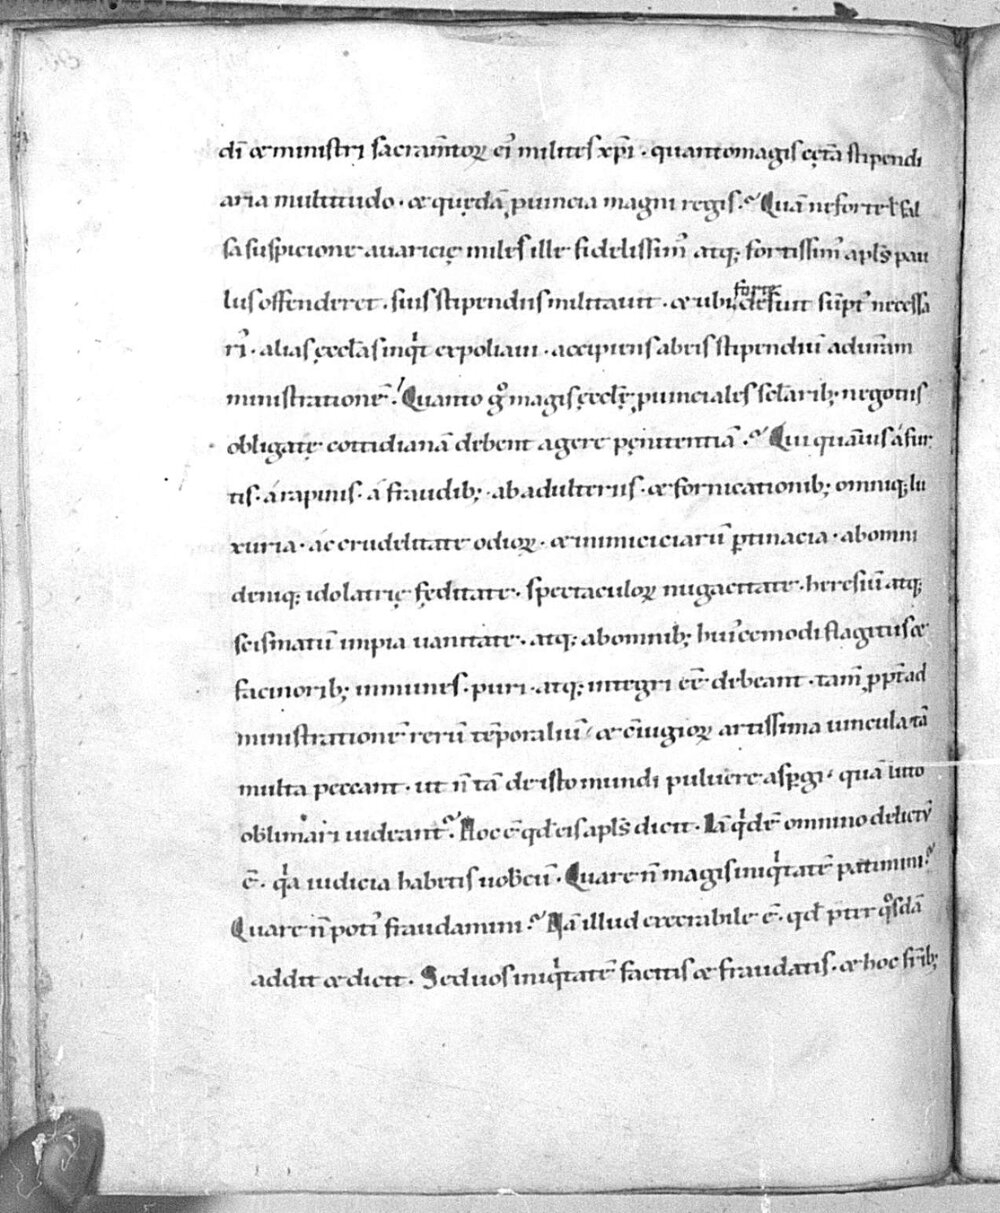 dī & ministri sacram̄torꝝ ei᾽ milites xp̄i · quantomagis cęt̄a stipendi
aria multitudo · & quędā ꝓuincia magni regis. Quā neforte ł fal
sa suspicione auaricię miles ille fidelissim᾽ atq; fortissim᾽ apl̄s pau
lus offenderet · suis stipendiis militauit · & ubi forte defuit sūpt᾽ necessa
ri᾽ · alias ęcclās inqͥt expoliaui · accipiens ab eis stipendiū ad ur̄am
ministrationē. Quanto gͦ magis ęcclę ꝓuinciales sclārib; negotiis
obligatę cottidianā debent agere pęnitentiā. Qui quāuis á fur
tis · á rapinis · á fraudib; · ab adulteriis · & fornicationib; omniq; lu
xuria · ac crudelitate odiorꝝ · & inimiciciarū ꝑtinacia · abomni
deniq; idolatrię fęditate · spectaculorꝝ nugacitate · heresiū atq;
scismatū impia uanitate · atq; abomnib; hui᾽cemodi flagitiis &
facinorib; inmunes · puri · atq; integri eē debeant · tam̄ ꝓpt̄ ad
ministrationē rerū tēporaliū & cōiugiorꝝ artissima uincula tā
multa peccant · ut n̄ tā de isto mundi puluere aspgi · quā luto
oblimari uideant᾽. Hoc ē qd̄ eis apl̄s dicit · Iā qͥdē omnino delictū
ē · qͥa iudicia habetis uobcū · Quare n̄ magis iniqͥtatē patimini.
Quare n̄ poti᾽ fraudamini. Nā illud execrabile ē · qd̄ pter qͦsdā
addit & dicit · Sed uos iniqͥtatē facitis & fraudatis · & hoc fr̄ib;